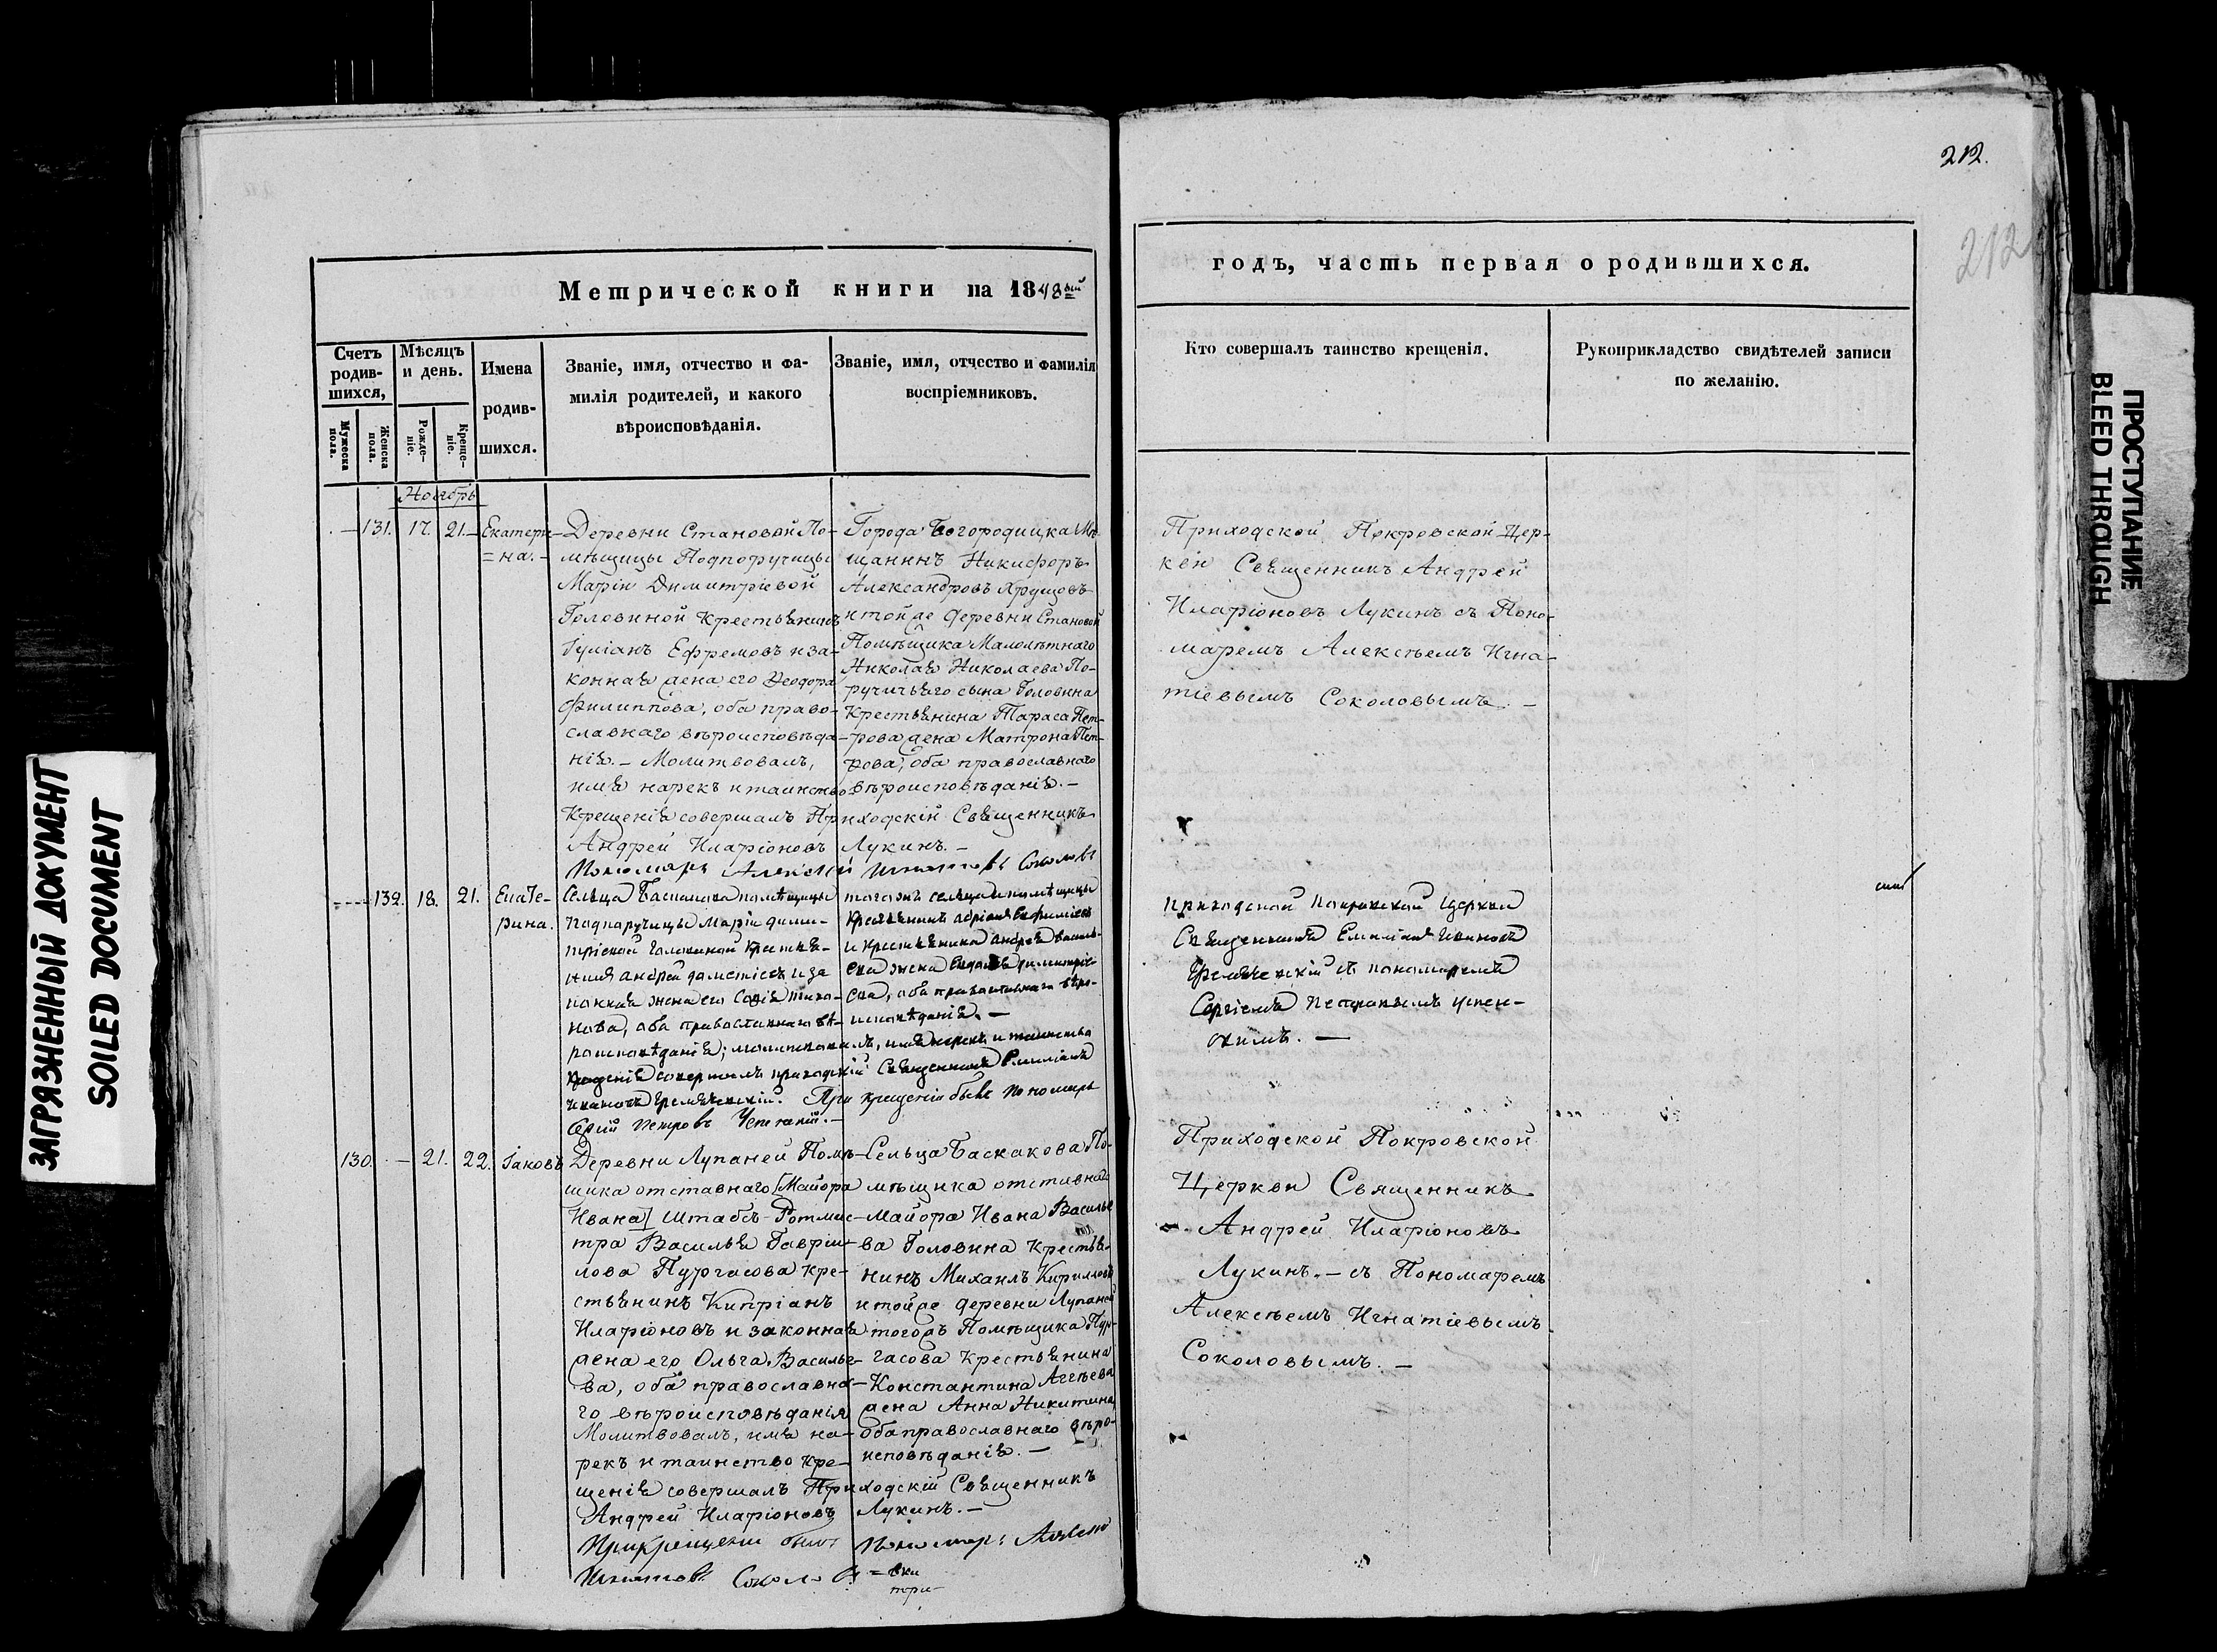 212.
212
Метрической книги на 1848ый
годъ, часть первая о родившихся.
Счетъ родив-шихся,
Мужеска пола.
Женска пола.
Мѣсяцъ и день.
Рожде-ніе.
Креще-ніе.
Имена
родив-
шихся.
Званіе, имя, отчество и фа-
милія родителей, и какого
вѣроисповѣданія.
Званіе, имя, отчество и фамилія
воспріемниковъ.
Кто совершалъ таинство крещенія.
Рукоприкладство свидѣтелей записи
по желанію.
Ноябрь
131. 17. 21.
Екатери-
=на.-
Деревни Становой По-
мѣщицы Подпоручицы
Маріи Димитріевой
Головиной Крестьянинъ
Іуліанъ Ефремовъ и за-
конная жена его Ѳеодора
Филиппова, оба право-
славнаго вѣроисповѣда-
нія.- Молитвовалъ,
имя нарекъ и таинство
Крещенія совершалъ Приходскій Священникъ
Андрей Иларіоновъ Лукинъ.-
Пономарь Алексѣй Игнатовъ Соколовъ
Города Богородицка Мѣ-
щанинъ Никифоръ
Александровъ Хрущовъ
и той же деревни Становой
Помѣщика Малолѣтнаго
Николая Николаева По-
ручичьяго сына Головина
Крестьянина Тараса Пет-
рова жена Матрона Пет-
рова, оба православнаго
вѣроисповѣданія.-
Приходской Покровской Цер-
кви Священникъ Андрей
Иларіоновъ Лукинъ съ Поно-
маремъ Алексѣемъ Игна-
тіевымъ Соколовымъ.-
132. 18. 21.
Екате-
рина.
Сельца Баскакова помѣщицы
Подпоручицы Маріи Дими-
тріевой Головиной Крестья-
нинъ Андрей Дометіевъ и за
конная жена его Софія Тихо-
нова, оба православнаго вѣ-
роисповѣданія; молитвовалъ, имя нарекъ и таинство
Крещенія совершалъ приходскій Священникъ Емиліанъ
Ивановъ. При крещеніи былъ Пономарь
Сергій Петровъ Успенскій.-
тогожъ сельца и помѣщицы
Крестьянинъ Адріанъ
и Крестьянина Андрея Василь-
ева жена Димитріе-
ва, оба православнаго вѣро-
исповѣданія.-
приходской Покровской Церкви
Священникъ Емиліанъ Ивановъ
съ пономаремъ
Сергіемъ Петровымъ Успен-
скимъ.-
130. 21. 22.
Іаковъ
Деревни Лупаней Помѣ-
щика отставнаго [Майора
Ивана] Штабсъ-Ротмис-
тра Василья Гаврии-
лова Пургасова Кре-
стьянинъ Кипріанъ
Иларіоновъ и законная
жена его Ольга Василье-
ва, оба православна-
го вѣроисповѣданія
Молитвовалъ, имя на-
рекъ и таинство Кре-
щенія совершалъ Приходскій Священникъ
Андрей Иларіоновъ Лукинъ.-
При крещеніи былъ Пономарь Алексѣй
Игнатовъ Соколовъ
Сельца Баскакова По-
мѣщика отставнаго
Майора Ивана Василье
ва Головина Крестья-
нинъ Михаилъ Кирилловъ
и той же деревни Лупаней
тогожъ Помѣщика Пур-
гасова Крестьянина
Константина Агѣева
жена Анна Никитина,
оба православнаго вѣро-
исповѣданія.-
Приходской Покровской
Церкви Священникъ
Андрей Иларіоновъ
Лукинъ.- съ Пономаремъ
Алексѣемъ Игнатіевымъ
Соколовымъ.-
ЗАГРЯЗНЕННЫЙ ДОКУМЕНТ
SOILED DOCUMENT
ПРОСТУПАНИЕ
BLEED THROUGH